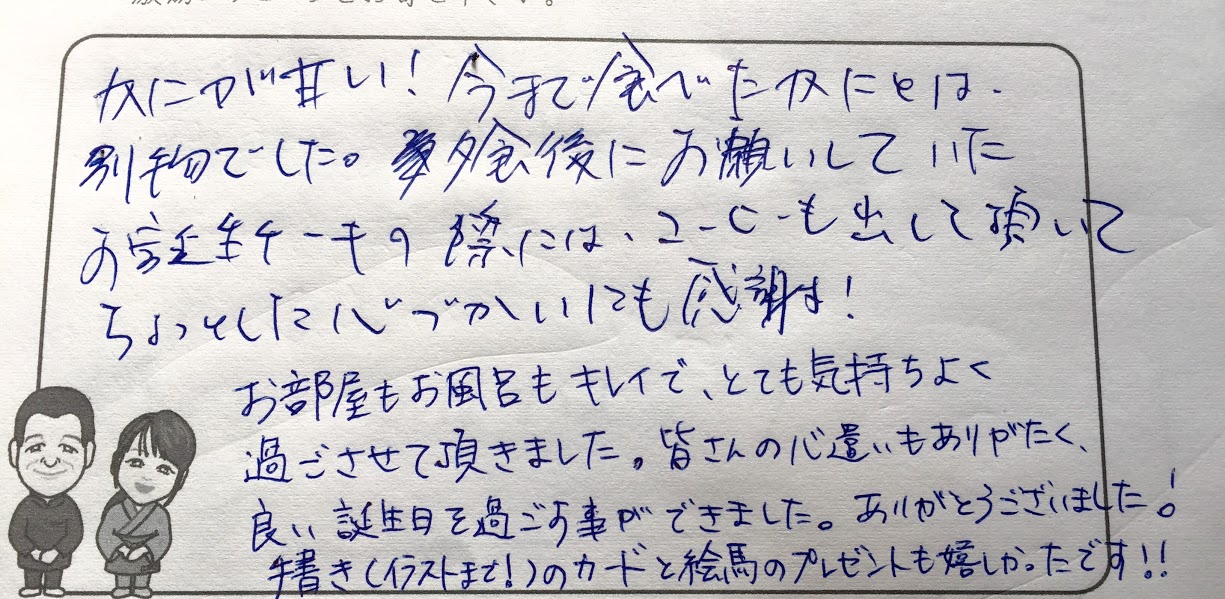 かにが甘い！今まで食べたかにとは、
別物でした。夕食後にお願いしていた
お誕生ケーキの際には、コーヒーも出して頂いて
ちょっとした心づかいにも感謝！
お部屋もお風呂もキレイで、とても気持ちよく
過ごさせて頂きました。皆さんの心遣いもありがたく、
良い誕生日を過ごす事ができました。ありがとうございました！
手書き（イラストまで！）のカードと絵馬のプレゼントも嬉しかったです！！